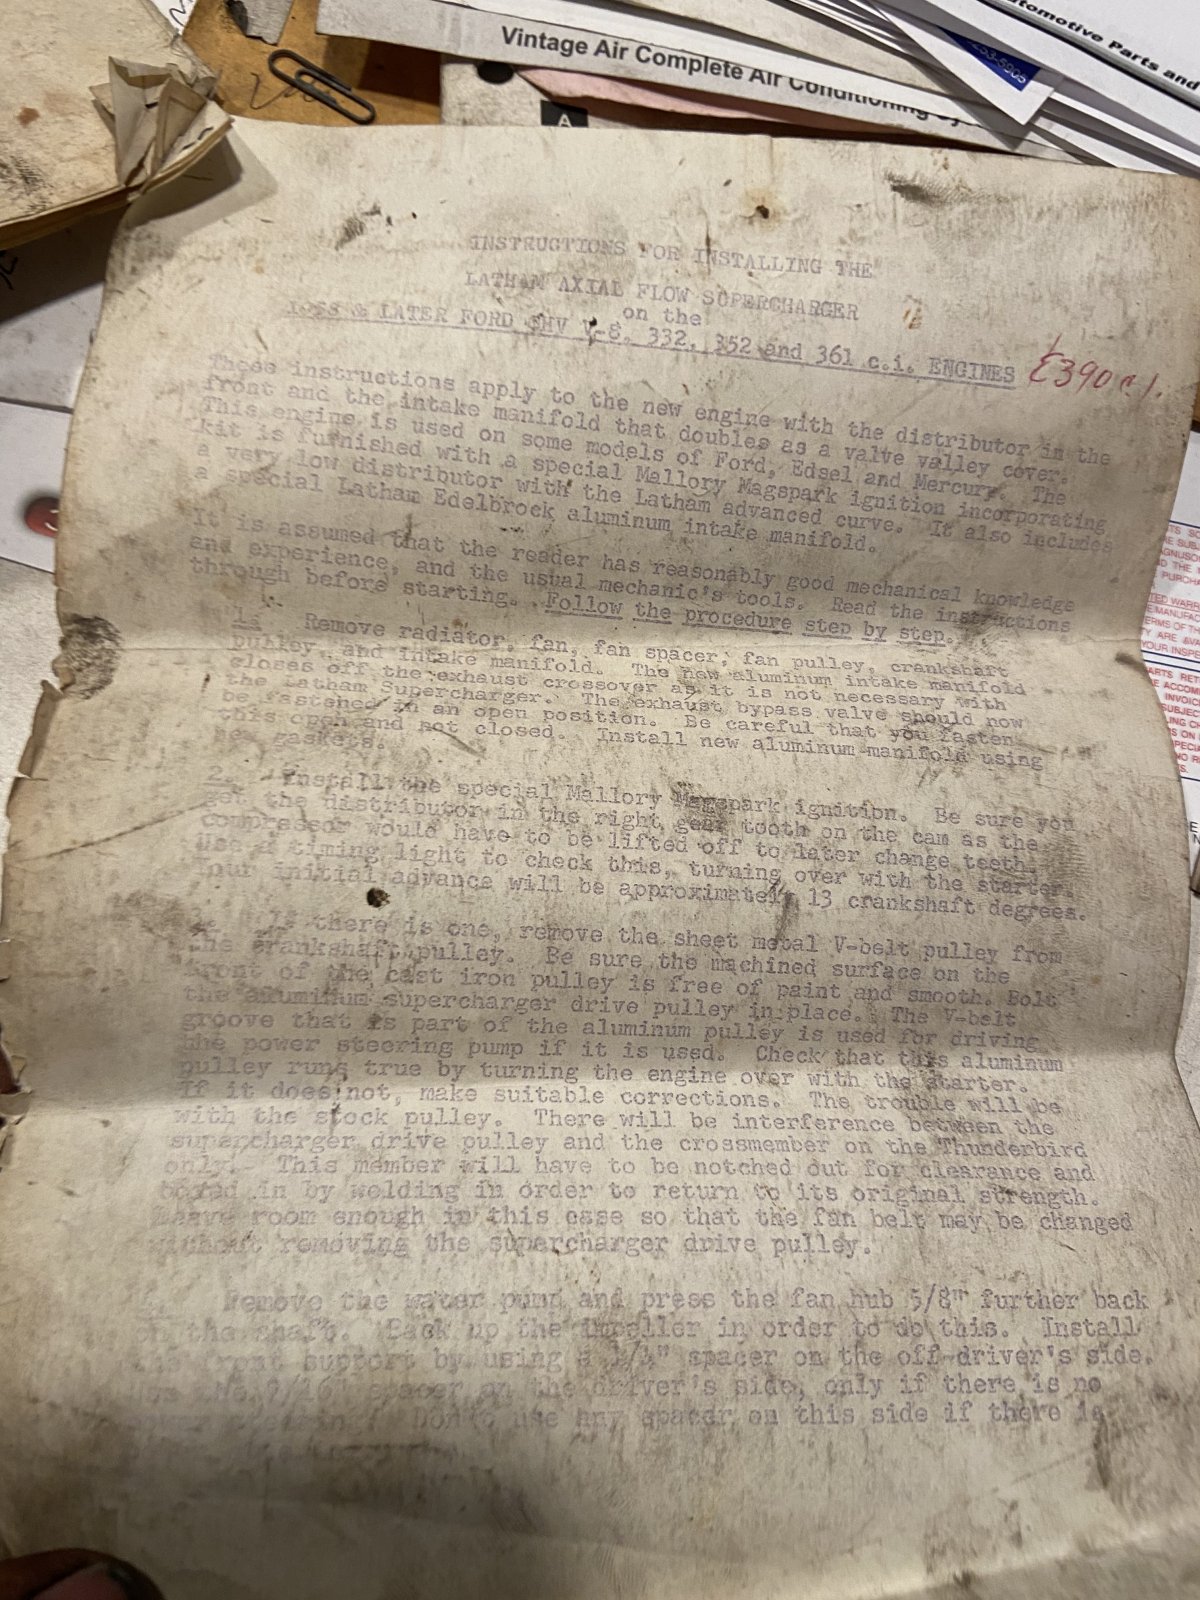 Vintage Air Complete Air Conditioning
Automotive Parts and
253-5905
A
INSTRUCTIONS FOR INSTALLING THE
LATHAM AXIAL FLOW SUPERCHARGER
on the
1958 & LATER FORD OHV V-8, 332, 352 and 361 c.i. ENGINES
& 390 c.i.
These instructions apply to the new engine with the distributor in the
front and the intake manifold that doubles as a valve valley cover.
This engine is used on some models of Ford, Edsel and Mercury. The
kit is furnished with a special Mallory Magspark ignition incorporating
a very low distributor with the Latham advanced curve. It also includes
a special Latham Edelbrock aluminum intake manifold.
It is assumed that the reader has reasonably good mechanical knowledge
and experience, and the usual mechanic's tools. Read the instructions
through before starting. Follow the procedure step by step.
1. Remove radiator, fan, fan spacer, fan pulley, crankshaft
pulley, and intake manifold. The new aluminum intake manifold
closes off the exhaust crossover as it is not necessary with
the Latham Supercharger. The exhaust bypass valve should now
be fastened in an open position. Be careful that you fasten
this open and not closed. Install new aluminum manifold using
gaskets.
2. Install the special Mallory Magspark ignition. Be sure you
get the distributor in the right gear tooth on the cam as the
compressor would have to be lifted off to later change teeth.
Use a timing light to check this, turning over with the starter.
Your initial advance will be approximately 13 crankshaft degrees.
3. If there is one, remove the sheet metal V-belt pulley from
the crankshaft pulley. Be sure the machined surface on the
front of the cast iron pulley is free of paint and smooth. Bolt
the aluminum supercharger drive pulley in place. The V-belt
groove that is part of the aluminum pulley is used for driving
the power steering pump if it is used. Check that this aluminum
pulley runs true by turning the engine over with the starter.
If it does not, make suitable corrections. The trouble will be
with the stock pulley. There will be interference between the
supercharger drive pulley and the crossmember on the Thunderbird
only. This member will have to be notched out for clearance and
boxed in by welding in order to return to its original strength.
Leave room enough in this case so that the fan belt may be changed
without removing the supercharger drive pulley.
Remove the water pump and press the fan hub 5/8" further back
on the shaft. Back up the impeller in order to do this. Install
front support by using a 1/4" spacer on the off-driver's side.
spacer on the driver's side, only if there is no
Don't use any spacer on this side if there is